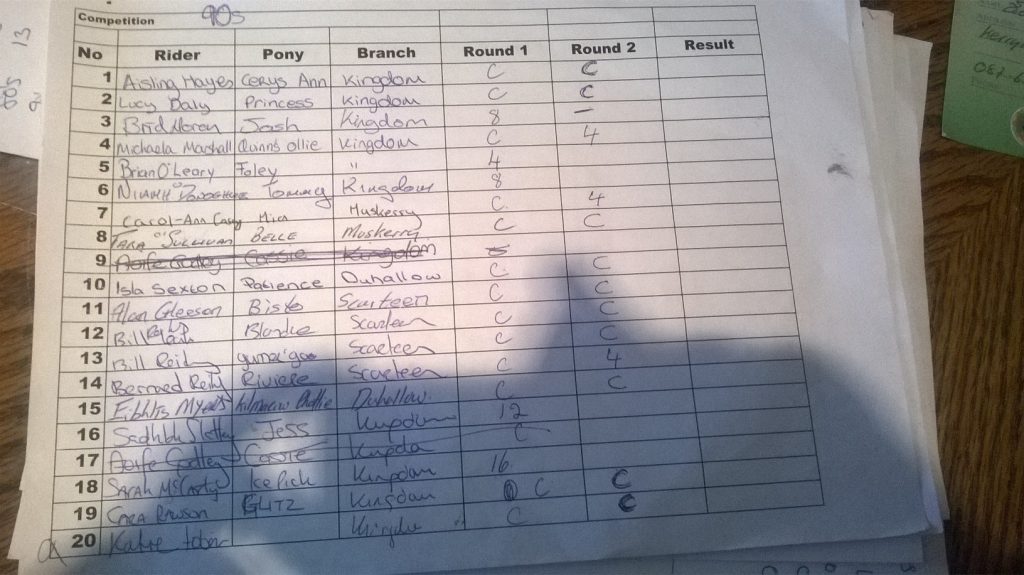 Competition 90s
No Rider Pony Branch Round 1 Round 2 Result
1 Aisling Hayes Cerys Ann Kingdom C C
2 Lucy Daly Princess Kingdom C C
3 Brid Moran Josh Kingdom 8 –
4 Michaela Marshall Quinns Ollie Kingdom C 4
5 Brian O'Leary Foley " 4
6 Niamh O'Donoghue Tommy Kingdom 8
7 Carol-Ann Casey Mica Muskerry C 4
8 Tara O'Sullivan Belle Muskerry C C
9 Aoife Godley Cassie Kingdom
10 Isla Sexton Patience Duhallow C C
11 Alan Gleeson Bisto Scarteen C C
12 Bill Blondie Scarteen C C
13 Bill Reily Scarteen C 4
14 Bernard Reily Riviere Scarteen C C
15 Myers Duhallow C
16 Sadhbh Jess Kingdom 12
17 Aoife Godley Cassie C
18 Sarah McCarthy Icepick Kingdom 16
19 Cara Rawson Glitz Kingdom C C
20 Katie Tobin C C
80s
13